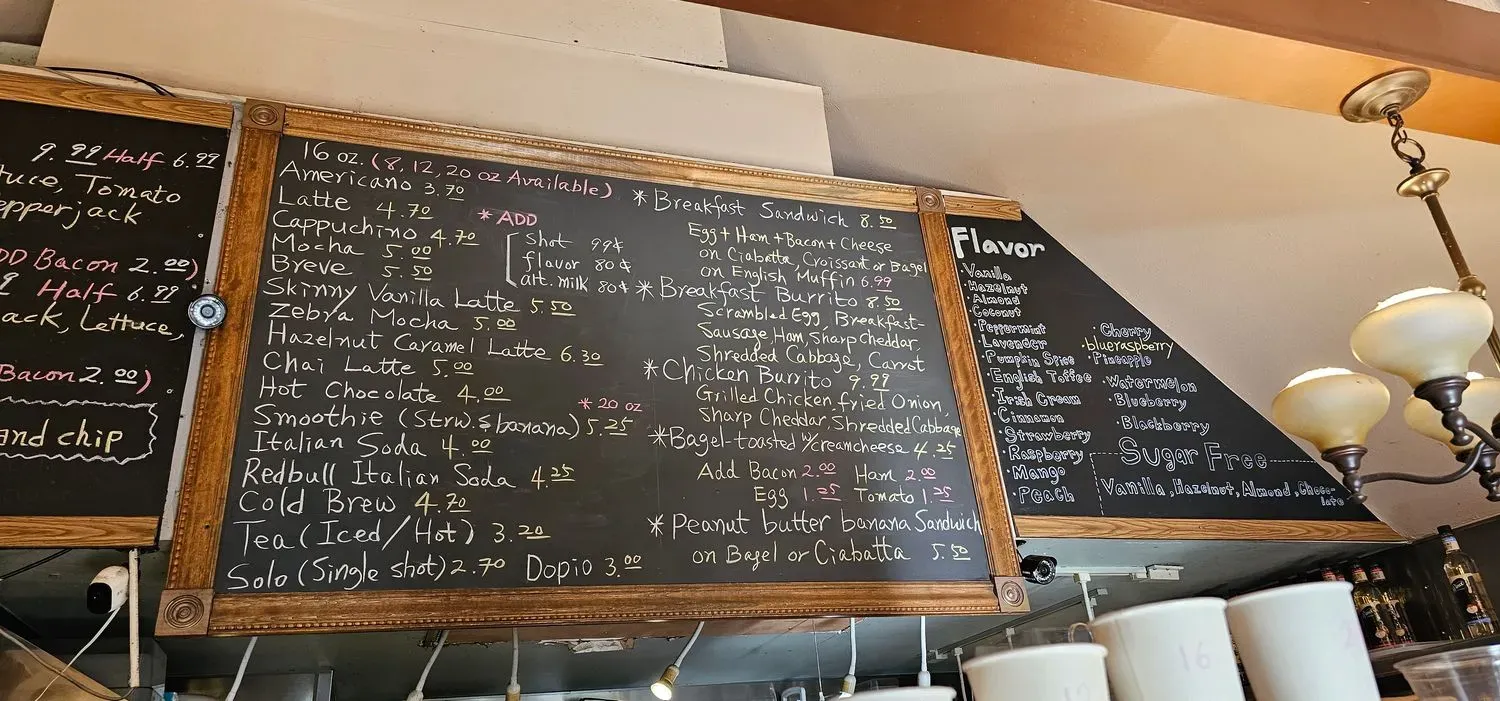 9.99 Half 6.99
tuce, Tomato
epperjack
DD Bacon 2.00)
9 Half 6.99
ack, Lettuce,
Bacon 2.00)
and chip
16 oz. (8, 12, 20 oz Available)
Americano 3.70
Latte 4.70
Cappuchino 4.70
Mocha 5.00
Breve 5.50
Skinny Vanilla Latte 5.50
Zebra Mocha 5.00
Hazelnut Caramel Latte 6.30
Chai Latte 5.00
Hot Chocolate 4.00
* 20 oz
Smoothie (Strw. & banana) 5.25
Italian Soda 4.00
Redbull Italian Soda 4.25
Cold Brew 4.70
Tea (Iced/Hot) 3.20
Solo (Single shot) 2.70 Dopio 3.00
* ADD
Shot 99¢
flavor 80¢
alt. milk 80¢
* Breakfast Sandwich 8.50
Egg + Ham + Bacon + Cheese
on Ciabatta, Croissant or Bagel
on English Muffin 6.99
* Breakfast Burrito 8.50
Scrambled Egg, Breakfast-
Sausage, Ham, Sharp Cheddar,
Shredded Cabbage, Carrot
* Chicken Burrito 9.99
Grilled Chicken, fried Onion,
Sharp Cheddar, Shredded Cabbage
* Bagel-toasted w/creamcheese 4.25
Add Bacon 2.00 Ham 2.00
Egg 1.25 Tomato 1.25
* Peanut butter banana Sandwich
on Bagel or Ciabatta 5.50
Flavor
· Vanilla
· Hazelnut
· Almond
· Coconut
· Peppermint
· Lavender
· Pumpkin Spice
· English Toffee
· Irish Cream
· Cinnamon
· Strawberry
· Raspberry
· Mango
· Peach
· Cherry
· blueraspberry
· Pineapple
· Watermelon
· Blueberry
· Blackberry
Sugar Free
Vanilla, Hazelnut, Almond, Choco-
late
16